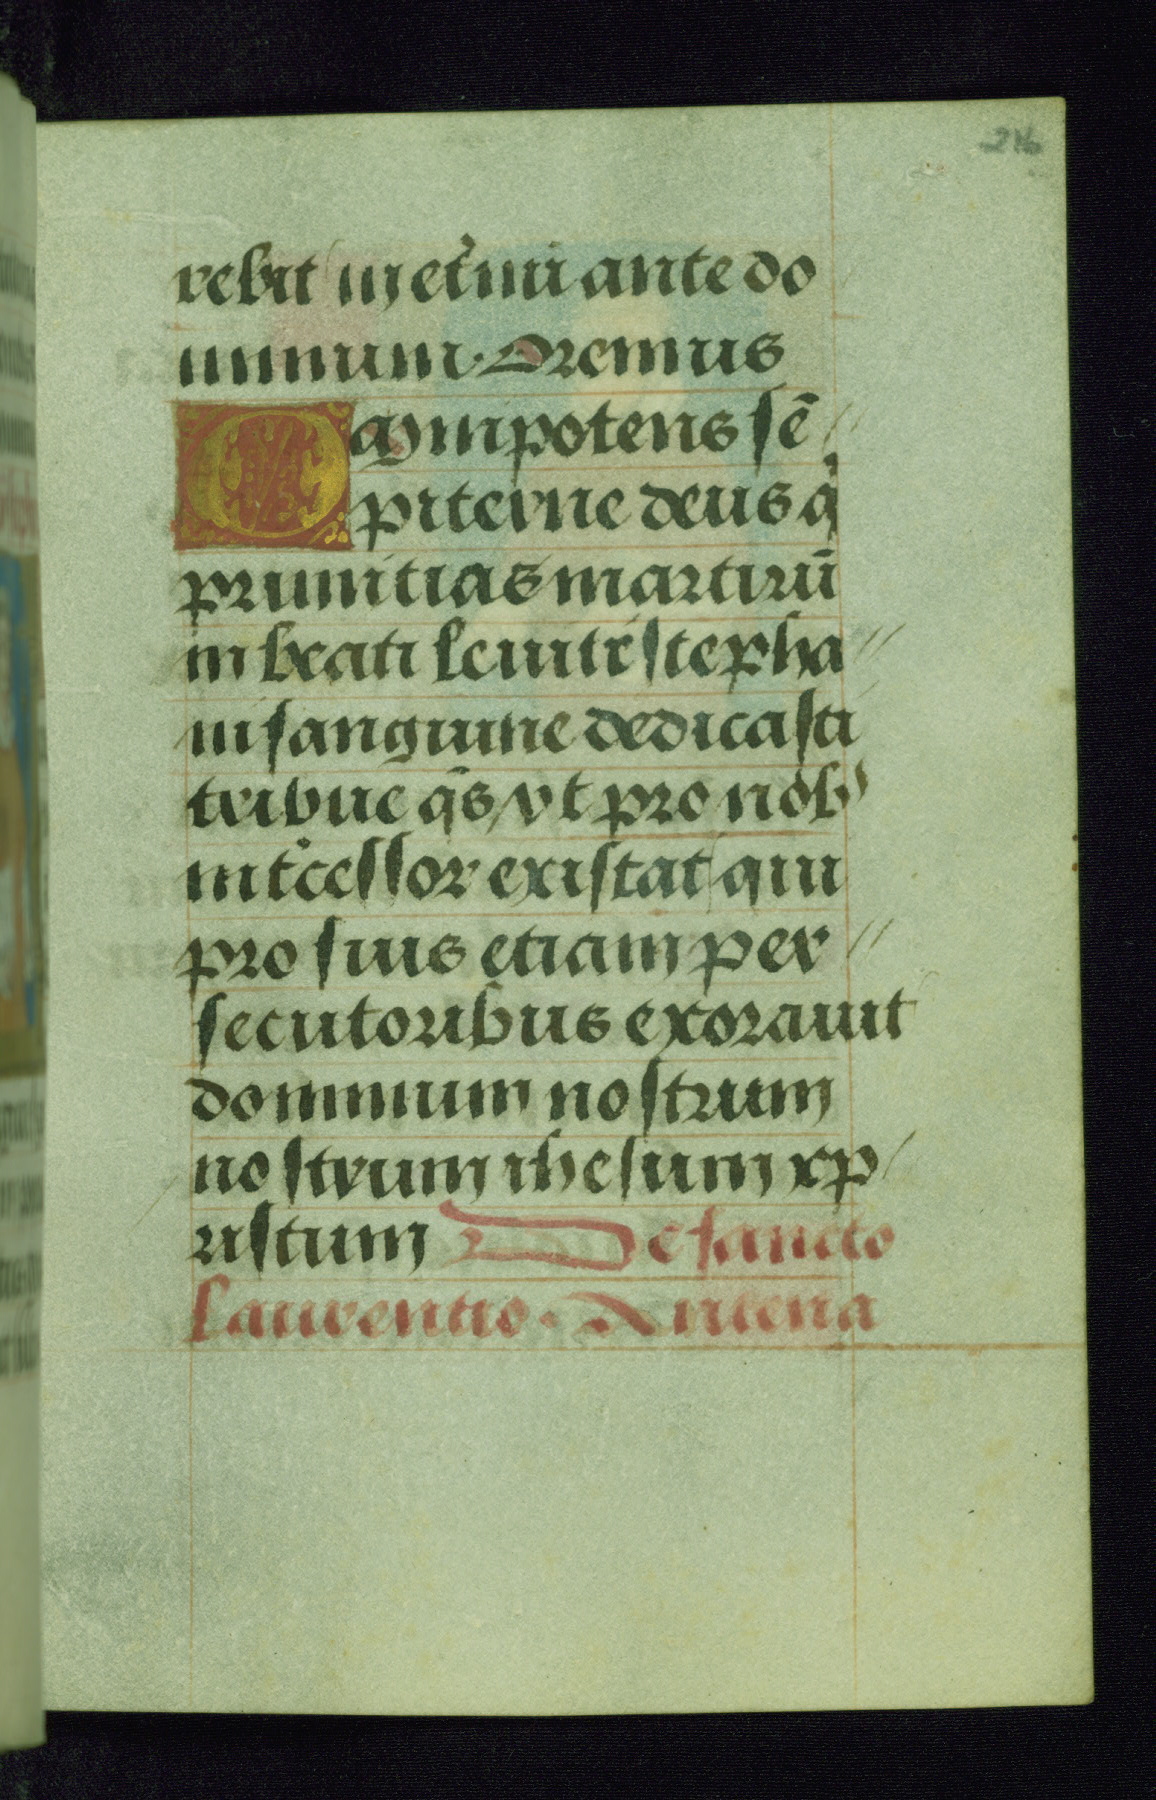 216
rebit in et̉nū ante do
minum. Oremus
Omnipotens sē
piterne deus q̇
primitias martirū
in beati leuite stepha
ni sanguine dedicasti
tribue q̄s vt pro nob᾽
int̉cessor existat qui
pro suis etiam per
secutoribus exorauit
dominum nostrum
nostrum ihesum xp
ristum De sancto
laurentio. Antena